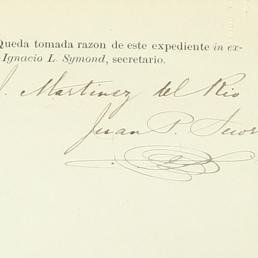 Queda tomada razon de este expediente in ex-
Ignacio L. Symond, secretario.
J. Martinez del Rio
Juan P.